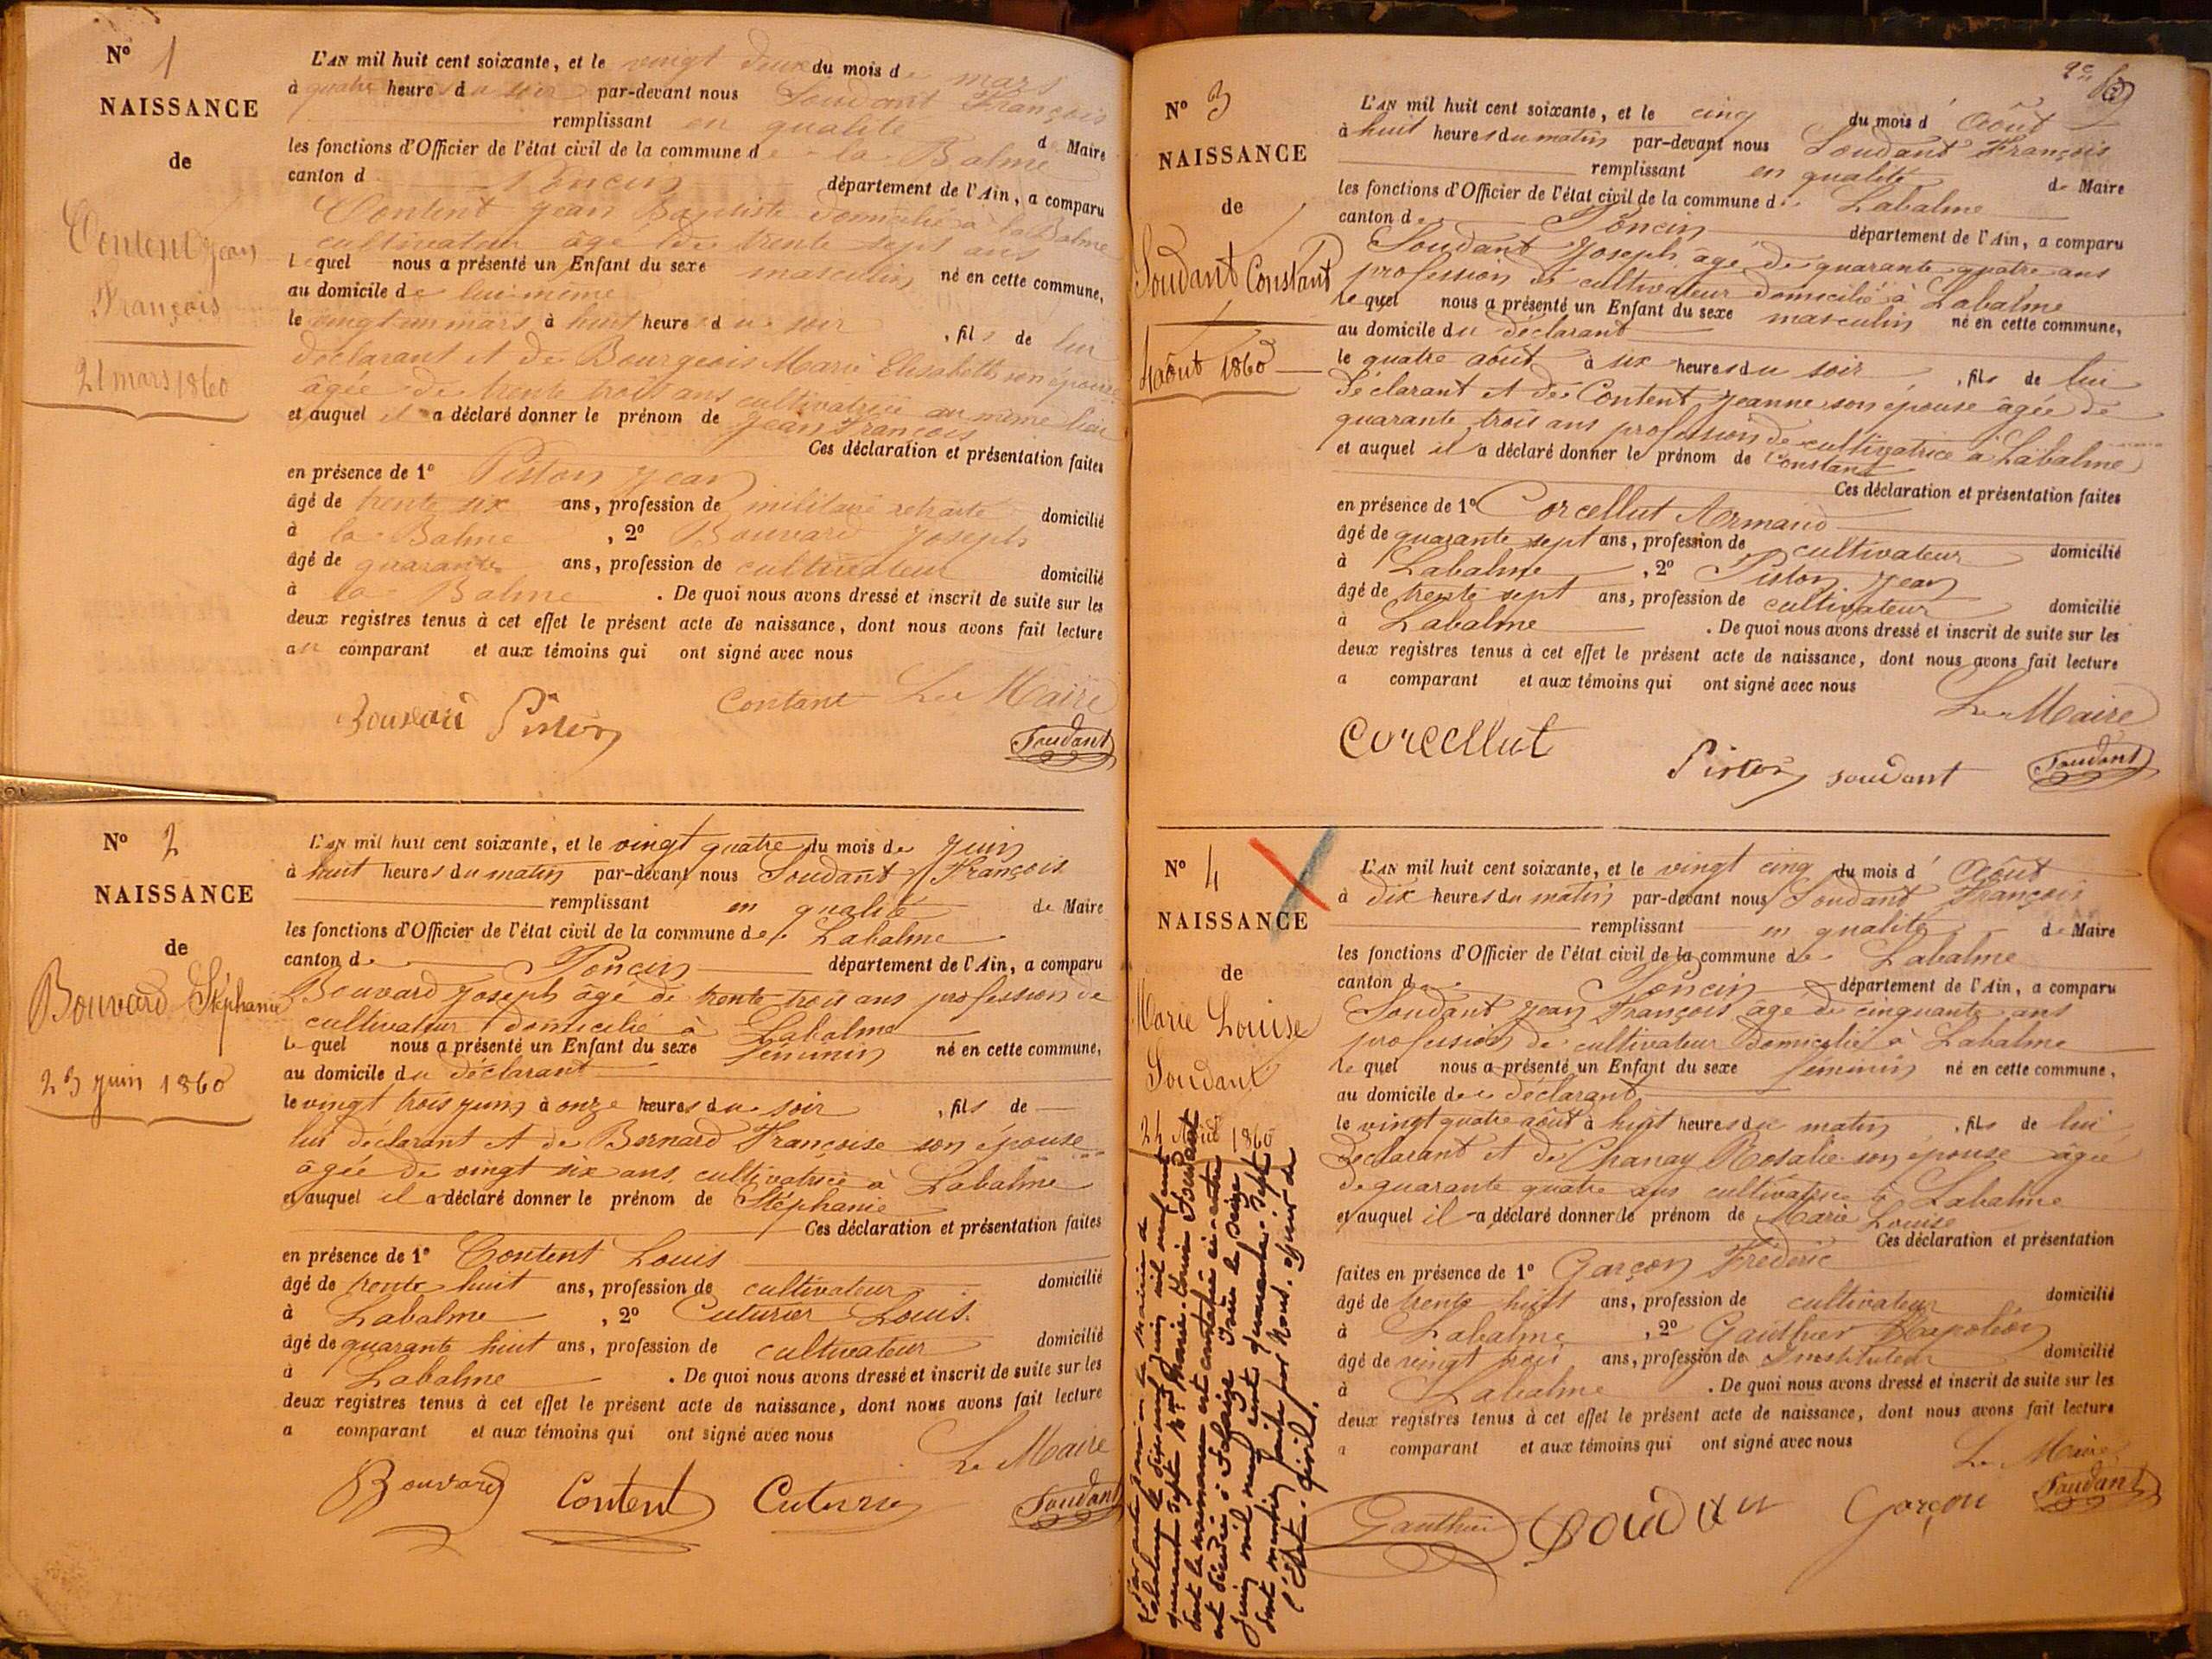 N° 1
NAISSANCE
de
Content Jean
François
21 mars 1860
L'AN mil huit cent soixante, et le vingt deux du mois de mars
à quatre heures du soir par-devant nous Soudant François
remplissant en qualité de Maire
les fonctions d'Officier de l'état civil de la commune de la Balme
canton d Poncin département de l'Ain, a comparu
Content Jean Baptiste domicilié à la Balme
cultivateur âgé de trente sept ans
Lequel nous a présenté un Enfant du sexe masculin né en cette commune,
au domicile de lui-même
le vingt un mars à huit heures du soir, fils de lui
déclarant et de Bourgeois Marie Elisabeth son épouse
âgée de trente trois ans cultivatrice au même lieu
et auquel il a déclaré donner le prénom de Jean François
Ces déclaration et présentation faites
en présence de 1° Piston Jean
âgé de trente six ans, profession de militaire retraité domicilié
à la Balme, 2° Bouvard Joseph
âgé de quarante ans, profession de cultivateur domicilié
à la Balme. De quoi nous avons dressé et inscrit de suite sur les
deux registres tenus à cet effet le présent acte de naissance, dont nous avons fait lecture
au comparant et aux témoins qui ont signé avec nous
Bouvard Piston Contant Le Maire
Soudant
N° 2
NAISSANCE
de
Bouvard Stéphanie
23 juin 1860
L'AN mil huit cent soixante, et le vingt quatre du mois de Juin
à huit heures du matin par-devant nous Soudant François
remplissant en qualité de Maire
les fonctions d'Officier de l'état civil de la commune de Labalme
canton de Poncin département de l'Ain, a comparu
Bouvard Joseph âgé de trente-trois ans profession de
cultivateur domicilié à Labalme
Lequel nous a présenté un Enfant du sexe féminin né en cette commune,
au domicile du déclarant
le vingt trois juin à onze heures du soir, fils de
lui déclarant et de Bernard Françoise son épouse
âgée de vingt six ans, cultivatrice à Labalme
et auquel il a déclaré donner le prénom de Stéphanie
Ces déclaration et présentation faites
en présence de 1° Content Louis
âgé de trente huit ans, profession de cultivateur domicilié
à Labalme, 2° Cuturier Louis.
âgé de quarante huit ans, profession de cultivateur domicilié
à Labalme. De quoi nous avons dressé et inscrit de suite sur les
deux registres tenus à cet effet le présent acte de naissance, dont nous avons fait lecture
a comparant et aux témoins qui ont signé avec nous
Le Maire
Bouvard Content Cuturier Soudant
N° 3
NAISSANCE
de
Soudant Constant
4 août 1860
L'AN mil huit cent soixante, et le cinq du mois d' Août
à huit heures du matin par-devant nous Soudant François
remplissant en qualité de Maire
les fonctions d'Officier de l'état civil de la commune de Labalme
canton de Poncin département de l'Ain, a comparu
Soudant Joseph âgé de quarante quatre ans
profession de cultivateur domicilié à Labalme
lequel nous a présenté un Enfant du sexe masculin né en cette commune,
au domicile du déclarant
le quatre août à six heures du soir, fils de lui
déclarant et de Content Jeanne son épouse âgée de
quarante trois ans profession de cultivatrice à Labalme
et auquel il a déclaré donner le prénom de Constant
Ces déclaration et présentation faites
en présence de 1° Corcellut Armand
âgé de quarante sept ans, profession de cultivateur domicilié
à Labalme, 2° Piston Jean
âgé de trente sept ans, profession de cultivateur domicilié
à Labalme. De quoi nous avons dressé et inscrit de suite sur les
deux registres tenus à cet effet le présent acte de naissance, dont nous avons fait lecture
a comparant et aux témoins qui ont signé avec nous
Le Maire
Corcellut Piston soudant Soudant
N° 4
NAISSANCE
de
Marie Louise
Soudant
24 Août 1860
L'AN mil huit cent soixante, et le vingt cinq du mois d' Août
à dix heures du matin par-devant nous Soudant François
remplissant en qualité de Maire
les fonctions d'Officier de l'état civil de la commune de Labalme
canton de Poncin département de l'Ain, a comparu
Soudant Jean François âgé de cinquante ans
profession de cultivateur domicilié à Labalme
lequel nous a présenté un Enfant du sexe féminin né en cette commune,
au domicile du déclarant
le vingt quatre août à huit heures du matin, fils de lui
déclarant et de Chanay Rosalie son épouse âgée
de quarante quatre ans cultivatrice à Labalme
et auquel il a déclaré donner le prénom de Marie Louise
Ces déclaration et présentation
faites en présence de 1° Garçon Frédéric
âgé de trente huit ans, profession de cultivateur domicilié
à Labalme, 2° Gauthier Napoléon
âgé de vingt trois ans, profession de Instituteur domicilié
à Labalme. De quoi nous avons dressé et inscrit de suite sur les
deux registres tenus à cet effet le présent acte de naissance, dont nous avons fait lecture
a comparant et aux témoins qui ont signé avec nous
Le Maire
Gauthier Soudan Garçon Soudant
Labalme le dix neuf juin mil neuf cent
quarante sept Marie-Louise Soudant
dont la naissance est constatée ci-contre
est décédée à
juin mil neuf cent quarante-sept
dont mention faite par Nous, officier de
l'État-Civil.